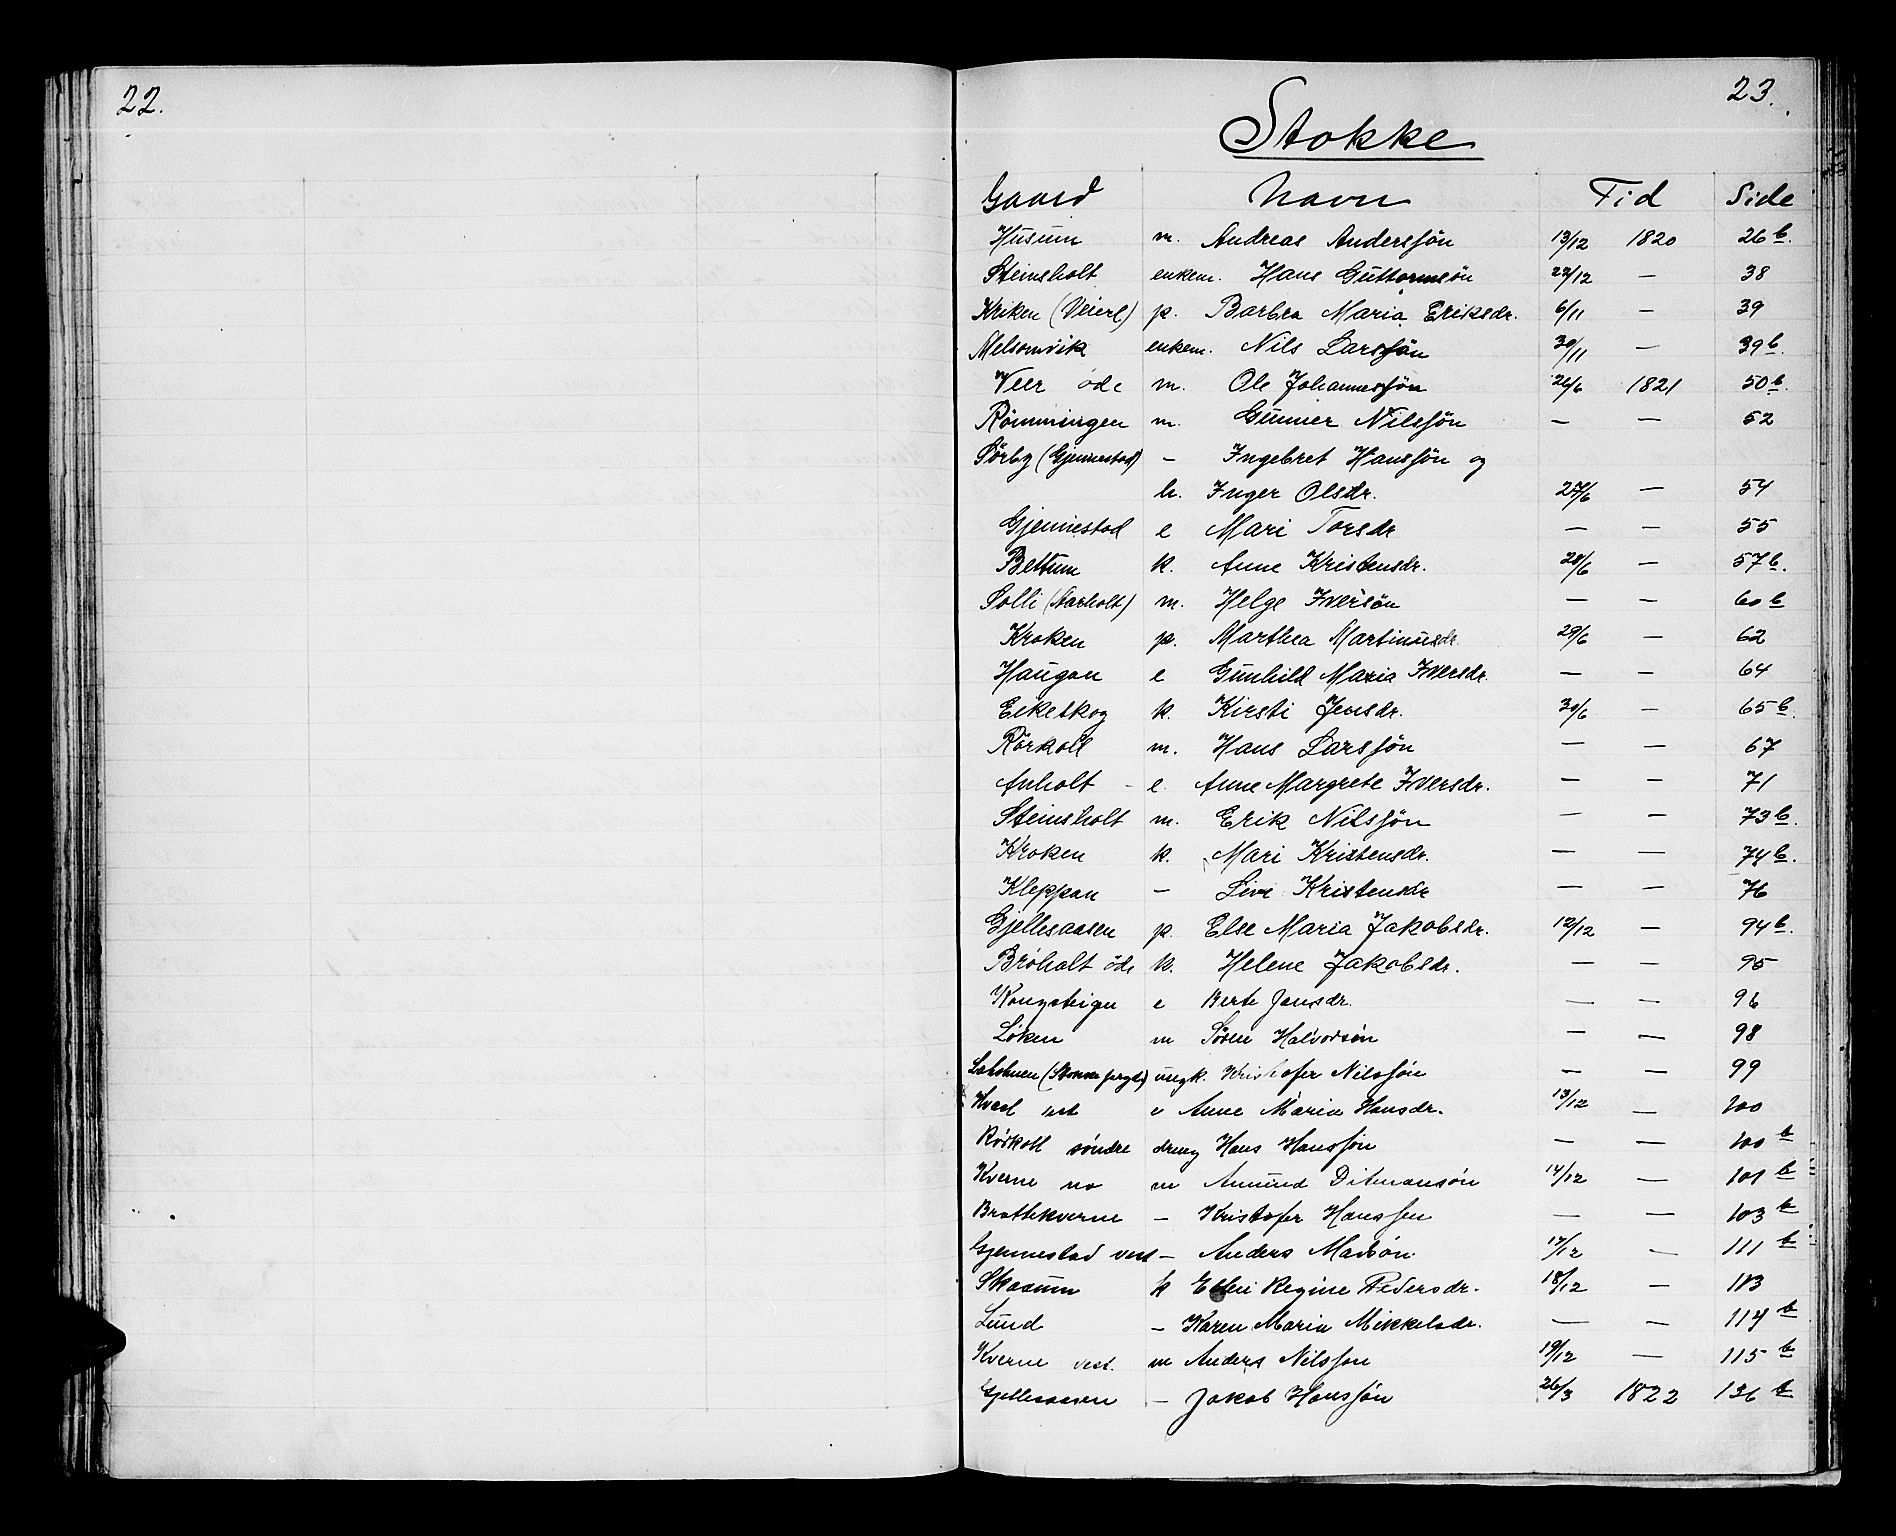 22.
23.
Stokke
Gaard Navn Tid Side
Husum m. Andreas Anderssön 13/12 1820 26 b.
Steinsholt enkem. Hans Guttormsön 22/12 — 38
Kriken (Veierl) p. Barbra Maria Eriksdr. 6/11 — 39
Melsomvik enkem. Nils Larssön 30/11 — 39 b.
Veer öde m. Ole Johannessön 26/6 1821 50 b.
Rönningen m. Gunner Nilssön — — 52
Sörby (Gjennestad) — Ingebret Hanssön og
h. Inger Olsdr. 27/6 — 54
Gjennestad e Mari Torsdr — — 55
Bettum k. Anne Kristensdr. 28/6 — 57 b.
Solli (Aarholt) m. Helge Iversön — — 60 b
Kroken p. Marthea Martinusdr. 29/6 — 62
Haugan e Gunhild Maria Iversdr. — — 64
Eikeskog k. Kirsti Jensdr. 30/6 — 65 b.
Rörkoll m. Hans Larssön — — 67
Anholt e. Anne Margrete Iversdr. — — 71
Steinsholt m. Erik Nilssön — — 73 b.
Kroken k. Mari Kristensdr. — — 74 b.
Kleppan — Live Kristensdr — — 76
Gjellesaasen p. Else Maria Jakobsdr. 12/12 — 94 b.
Bröholt öde k. Helene Jakobsdr. — — 95
Kongsteigen e Berte Jensdr. — — 96
Löken m Sören Halvorsön — — 98
ungk. Kristofer Nilssön — — 99
e Anne Maria Hansdr. 13/12 — 100
Rörkoll söndre dreng Hans Hanssön — — 100 b
Kverne no m Amund Ditmansön 14/12 — 101 b
Brattekverne — Kristofer Hanssen — — 103 b
Gjennestad vest — Anders Madsön 17/12 — 111 b
Skaaum k Ellen Regine Pedersdr. 18/12 — 113
Lund — Karen Maria Mikkelsdr. — — 114 b
Kverne vest. m Anders Nilsson 19/12 — 115 b
Gjellesaasen — Jakob Hanssön 26/3 1822 136 b